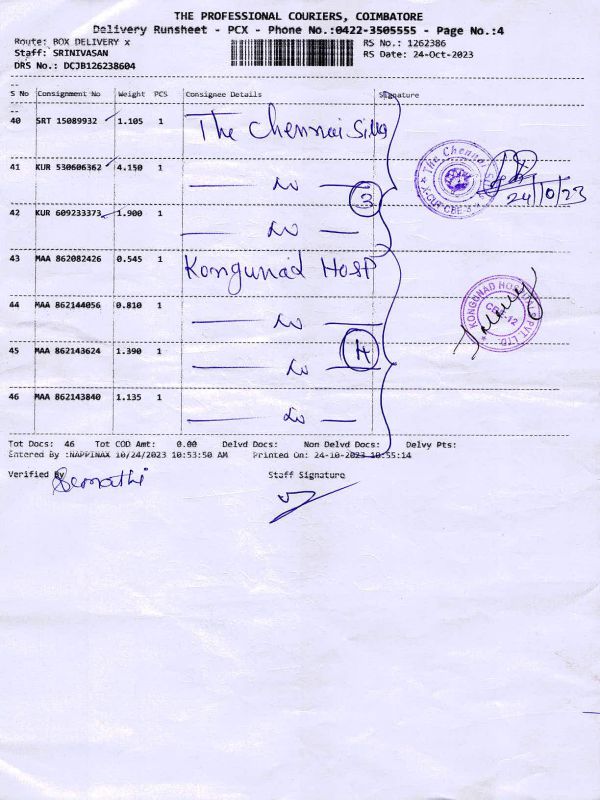 THE PROFESSIONAL COURIERS, COIMBATORE
Delivery Runsheet - PCX - Phone No.:0422-3505555 - Page No.:4
Route: BOX DELIVERY x RS No.: 1262386
Staff: SRINIVASAN RS Date: 24-Oct-2023
DRS No.: DCJB126238604
S No Consignment No Weight PCS Consignee Details Signature
40 SRT 15089932 1.105 1 The Chennai Silks
41 KUR 530606362 4.150 1 Do 3
The Chennai
X-CUT-CBE-
24/10/23
42 KUR 609233373 1.900 1 Do
43 MAA 862082426 0.545 1 Kongunad Hosp
44 MAA 862144056 0.810 1 Do
KONGUNAD HOSPITALS PVT. LTD.
CBE-12
45 MAA 862143624 1.390 1 Do 4
46 MAA 862143840 1.135 1 Do
Tot Docs: 46 Tot COD Amt: 0.00 Delvd Docs: Non Delvd Docs: Delvy Pts:
Entered By :NAPPINAX 10/24/2023 10:53:50 AM Printed On: 24-10-2023 10:55:14
Verified By Staff Signature